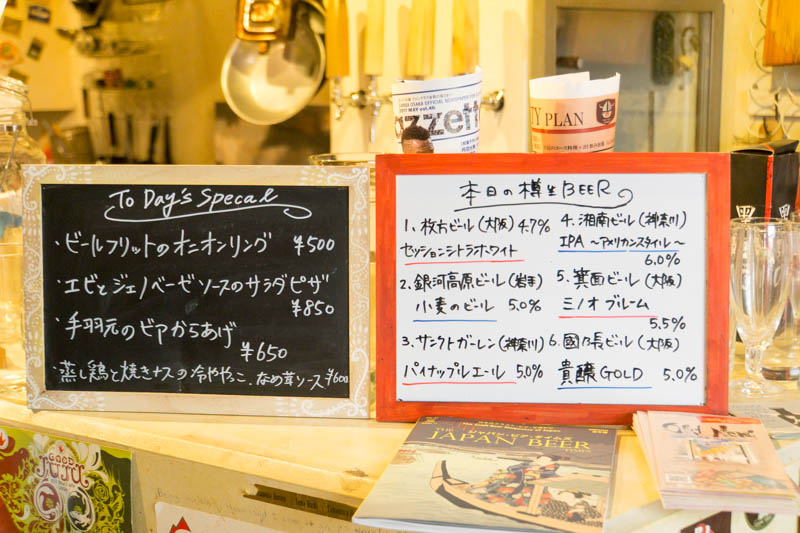 To Day's Specal
・ビールフリットのオニオンリング ¥500
・エビとジェノベーゼソースのサラダピザ
¥850
・手羽元のビアからあげ
¥650
・蒸し鶏と焼きナスの冷ややっこ. なめ茸ソース ¥600
本日の樽生BEER
1. 枚方ビール(大阪) 4.7%
セッションシトラホワイト
2. 銀河高原ビール(岩手)
小麦のビール 5.0%
3. サンクトガーレン(神奈川)
パイナップルエール 5.0%
4. 湘南ビール(神奈川)
IPA ~アメリカンスタイル~
6.0%
5. 箕面ビール(大阪)
ミノオブルーム
5.5%
6. 國乃長ビール(大阪)
貴醸GOLD 5.0%
azzett
TY PLAN
THE
JAPAN BEER
TIMES
GOOD
JUJU